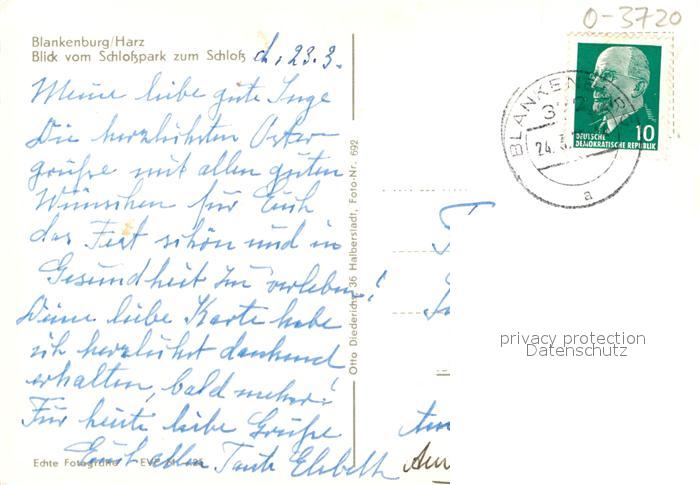 O-3720
Blankenburg/Harz
Blick vom Schloßpark zum Schloß d. 23.3.
Meine liebe gute Inge
Die herzlichsten Oster
grüße mit allen guten
Wünschen für Euch
das Fest schön und in
Gesundheit zu verleben!
Deine liebe Karte habe
ich herzlichst dankend
erhalten, bald mehr!
Für heute liebe Grüße
Euch allen Tante Elsbeth
Echte Fotografie
Otto Diederichs, 36 Halberstadt, Foto-Nr. 692
BLANKENBURG
24.3.
a
10
DEUTSCHE
DEMOKRATISCHE REPUBLIK
privacy protection
Datenschutz